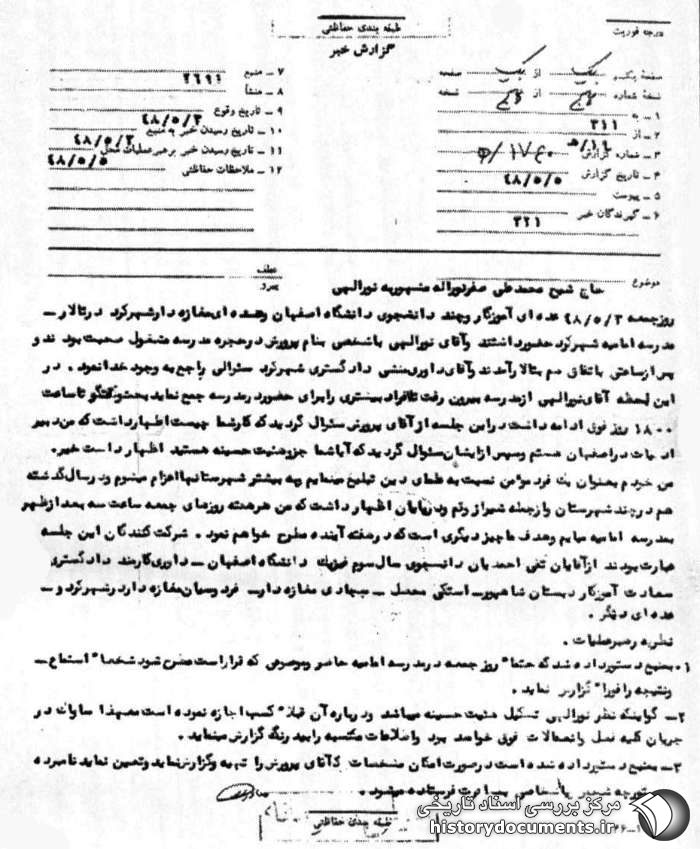 طبقه بندی حفاظتی
درجه فوریت
گزارش خبر
صفحه یک از یک صفحه
نسخه شماره از نسخه
۱ ـ به ۳۱۱
۲ ـ از ۱۰/ه
۳ ـ شماره گزارش ۱۷۴۰/ه
۴ ـ تاریخ گزارش ۴۸/۵/۵
۵ ـ پیوست
۶ ـ گیرندگان خبر ۳۲۱
۷ ـ منبع ۲۶۹۱
۸ ـ منشأ
۹ ـ تاریخ وقوع ۴۸/۵/۳
۱۰ ـ تاریخ رسیدن خبر به منبع ۴۸/۵/۳
۱۱ ـ تاریخ رسیدن خبر برهبر عملیات محل ۴۸/۵/۵
۱۲ ـ ملاحظات حفاظتی
موضوع حاج شیخ محمدعلی صفرنوراله مشهور به نورالهی
عطف
پیرو
روز جمعه ۴۸/۵/۳ عده ای آموزگار و چند دانشجوی دانشگاه اصفهان و عده ای مغازه دار شهرکرد در تالار ـ
مدرسه امامیه شهرکرد حضور داشتند و آقای نورالهی با شخصی بنام پرورش در حجره مدرسه مشغول صحبت بودند و
پس از ساعتی باتفاق هم بتالار آمدند و آقای داوری منشی دادگستری شهرکرد سئوالی راجع به وجود خدا نمود . در
این لحظه آقای نورالهی از مدرسه بیرون رفت تا افراد بیشتری را برای حضور در مدرسه جمع نماید بحث و گفتگو تا ساعت
۱۸۰۰ روز فوق ادامه داشت در این جلسه از آقای پرورش سئوال گردید که کار شما چیست اظهار داشت که من دبیر
ادبیات در اصفهان هستم و سپس از ایشان سئوال گردید که آیا شما جزو هئیت حسینه هستید اظهار داشت خیر.
من خودم بعنوان یک فرد مؤمن نسبت به علمای دین تبلیغ مینمایم و به بیشتر شهرستانها اعزام میشوم و در سال گذشته
هم در چند شهرستان و از جمله شیراز رفتم و در پایان اظهار داشت که من هر هفته روزهای جمعه ساعت سه بعد از ظهر
بمدرسه امامیه میایم و هدف ما چیز دیگری است که در هفته آینده مطرح خواهم نمود . شرکت کنندگان این جلسه
عبارت بودند از آقایان تقی احمدیان دانشجوی سال سوم فیزیک دانشگاه اصفهان ـ داوری کارمند دادگستری
سعادت آموزگار دبستان شاهپور ـ استکی محصل ـ جهادی مغازه دار ـ فردوسیان مغازه دار در شهرکرد و ـ
عده ای دیگر .
نظریه رهبر عملیات .
۱ـ بمنبع دستور داده شد که حتما" روز جمعه در مدرسه امامیه حاضر و موضوعی که قرار است مطرح شود شخصا" استماع ـ
و نتیجه را فورا" گزارش نماید .
۲ـ گو اینکه نظر نورالهی تشکیل هئیت حسینه میباشد و درباره آن قبلا" کسب اجازه نموده است معهذا ساواک در
جریان کلیه عمل و انفعالات فوق خواهد بود و اطلاعات مکتسبه را بیدرنگ گزارش مینماید .
۳ـ بمنبع دستور داده شده است در صورت امکان مشخصات آقای پرورش را تهیه و گزارش نماید و تعیین نماید نامبرده
فرستاده میشود .
طبقه بندی حفاظتی
مرکز بررسی اسناد تاریخی
historydocuments.ir